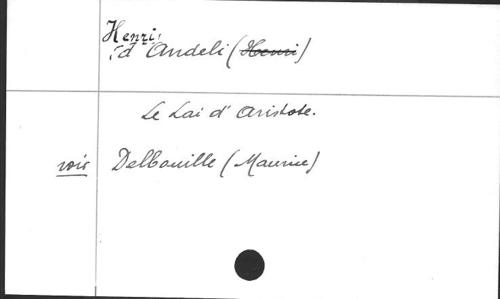 Henri
d'Andeli (Henri)
Le Lai d'Aristote.
voir Delbouille (Maurice)